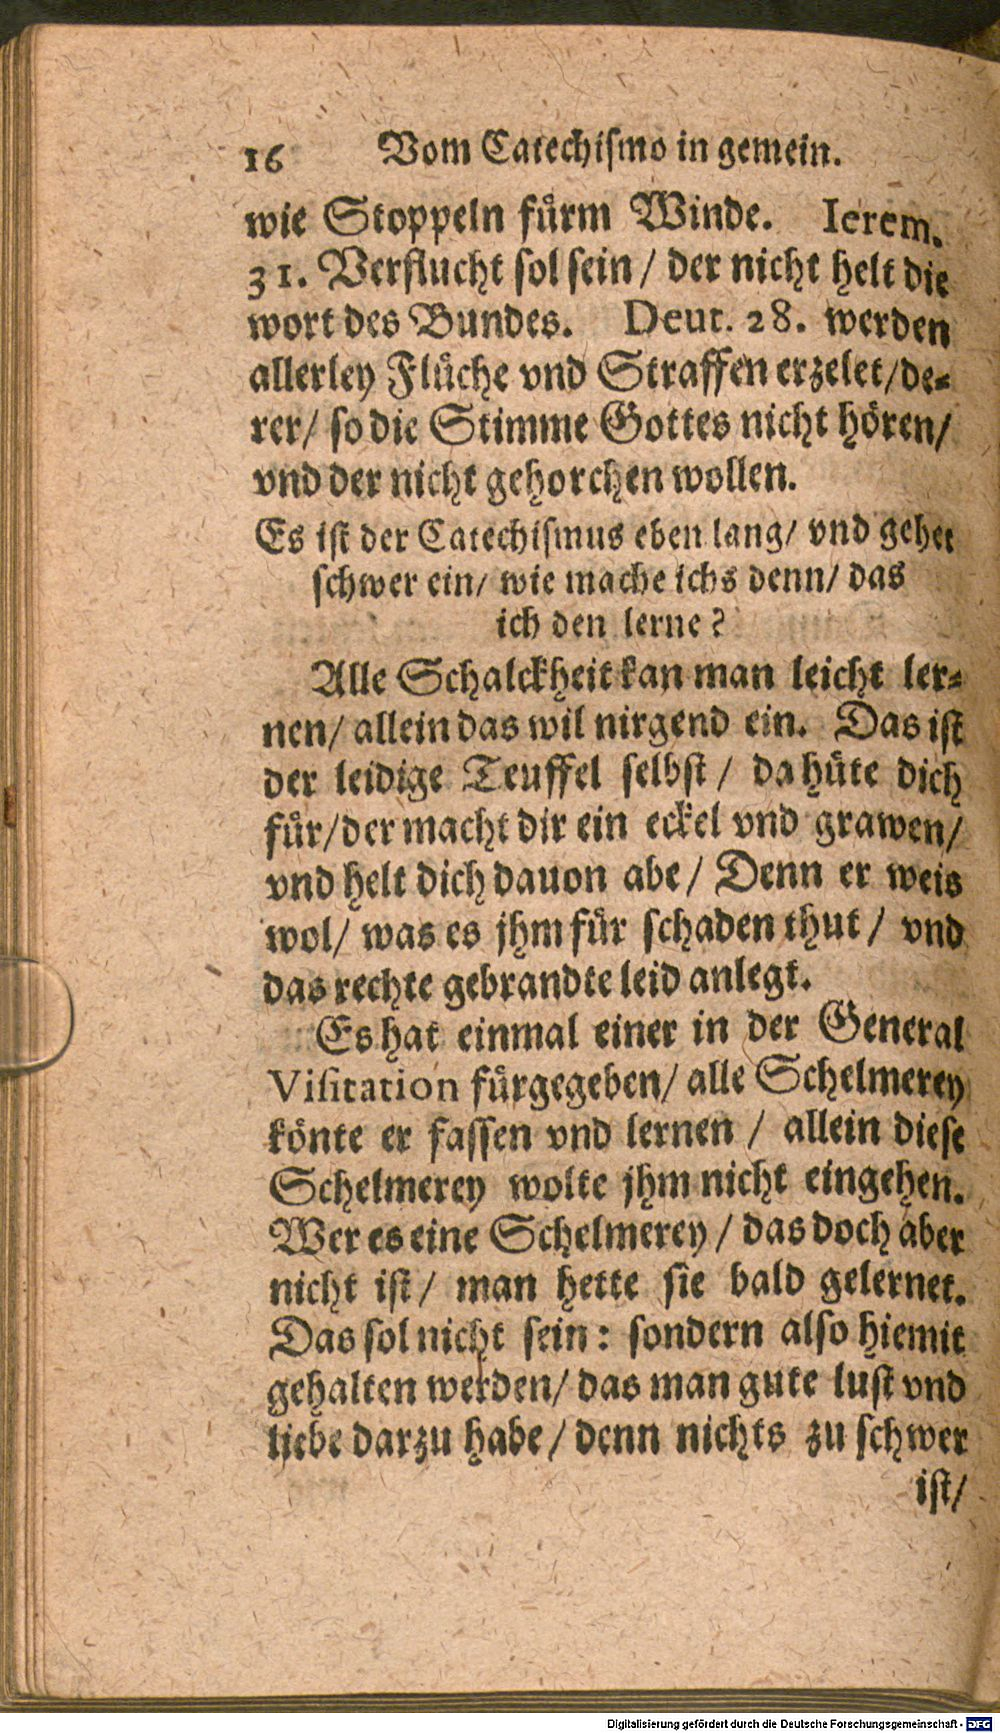 16 Vom Catechiſmo in gemein.
wie Stoppeln fürm Winde. Ierem.
31. Verflucht ſol ſein / der nicht helt die
wort des Bundes. Deut. 28. werden
allerley Flüche vnd Straffen erzelet/de⸗
rer/ ſo die Stimme Gottes nicht hören/
vnd der nicht gehorchen wollen.
Es iſt der Catechiſmus eben lang/ vnd gehet
ſchwer ein/ wie mache ichs denn/ das
ich den lerne?
Alle Schalckheit kan man leicht ler⸗
nen/ allein das wil nirgend ein. Das iſt
der leidige Teuffel ſelbſt / da hüte dich
für/der macht dir ein eckel vnd grawen/
vnd helt dich dauon abe/ Denn er weis
wol/ was es jhm für ſchaden thut / vnd
das rechte gebrandte leid anlegt.
Es hat einmal einer in der General
Viſitation fürgegeben/ alle Schelmerey
könte er faſſen vnd lernen / allein dieſe
Schelmerey wolte jhm nicht eingehen.
Wer es eine Schelmerey / das doch aber
nicht iſt/ man hette ſie bald gelernet.
Das ſol nicht ſein: ſondern alſo hiemit
gehalten werden/ das man gute luſt vnd
liebe darzu habe/ denn nichts zu ſchwer
iſt/
Digitalisierung gefördert durch die Deutsche Forschungsgemeinschaft - DFG